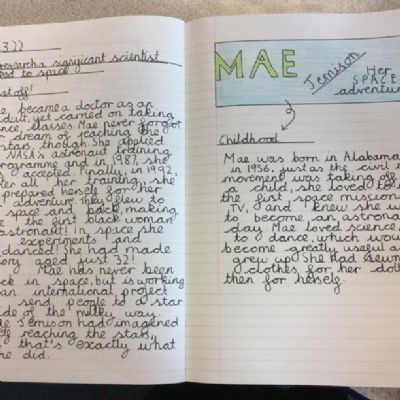 3.22
research a significant scientist
to space
staff!
became a doctor as an
yet carried on taking
classes. Mae never forgot
dream of reaching the
though. She applied
NASA's astronaut training
programme and in 1987, she
accepted. Finally, in 1992,
all her training, she
prepared herself for her
adventure. They flew to
space and back, making
the first black woman
astronaut! In space she
experiments and
danced! She had made
aged just 32!
Mae has never been
in space, but is working
an international project
send people to a star
of the milky way.
Jemison had imagined
reaching the stars,
that's exactly what
did.
MAE
Jemison
Her
SPACE
adventure
Childhood
Mae was born in Alabama
in 1956, just as the civil
movement was taking off.
a child, she loved to
the first space mission
TV, and knew she w
to become an astrona
day. Mae loved science,
to dance, which wou
become greatly useful a
grew up. She had sewn
clothes for her doll
then for herself.